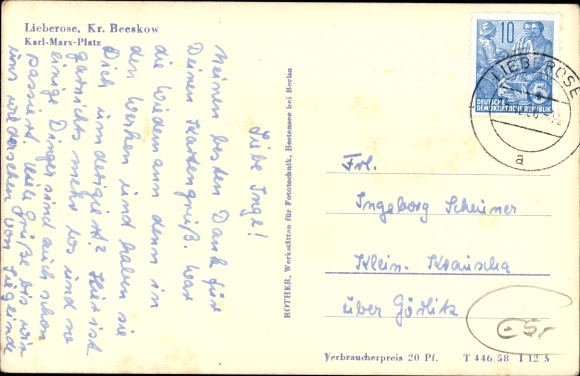 Lieberose, Kr. Beeskow
Karl-Marx-Platz
Liebe Inge!
Meinen besten Dank für
Deinen Kartengruß. War
die Wiedemann denn in
den Werken und haben sie
Dich umdirigiert? Hier ist
garnichts mehr los und so
einige Dinger sind auch schon
passiert. Viele Grüße bis wir
uns wiedersehen von Siegeinde
ROTHER, Werkstätten für Fototechnik, Bestensee bei Berlin
10
5
DEUTSCHE
DEMOKRATISCHE REPUBLIK
LIEBEROSE
a
Frl.
Ingeborg Scheuner
Klein-Krauscha
über Görlitz
€5,-
Verbraucherpreis 20 Pf. T 446/58 I 12 5